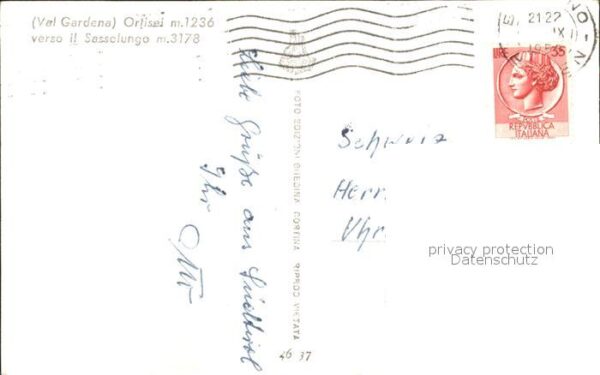 (Val Gardena) Ortisei m.1236
verso il Sassolungo m.3178
Liebe Grüße aus Südtirol
Ihr
Otto
FOTO EDIZIONI GHEDINA CORTINA RIPROD. VIETATA
46 37
21-22
IX
35
REPVBBLICA
ITALIANA
Schweiz
Herr.
Uhr.
privacy protection
Datenschutz